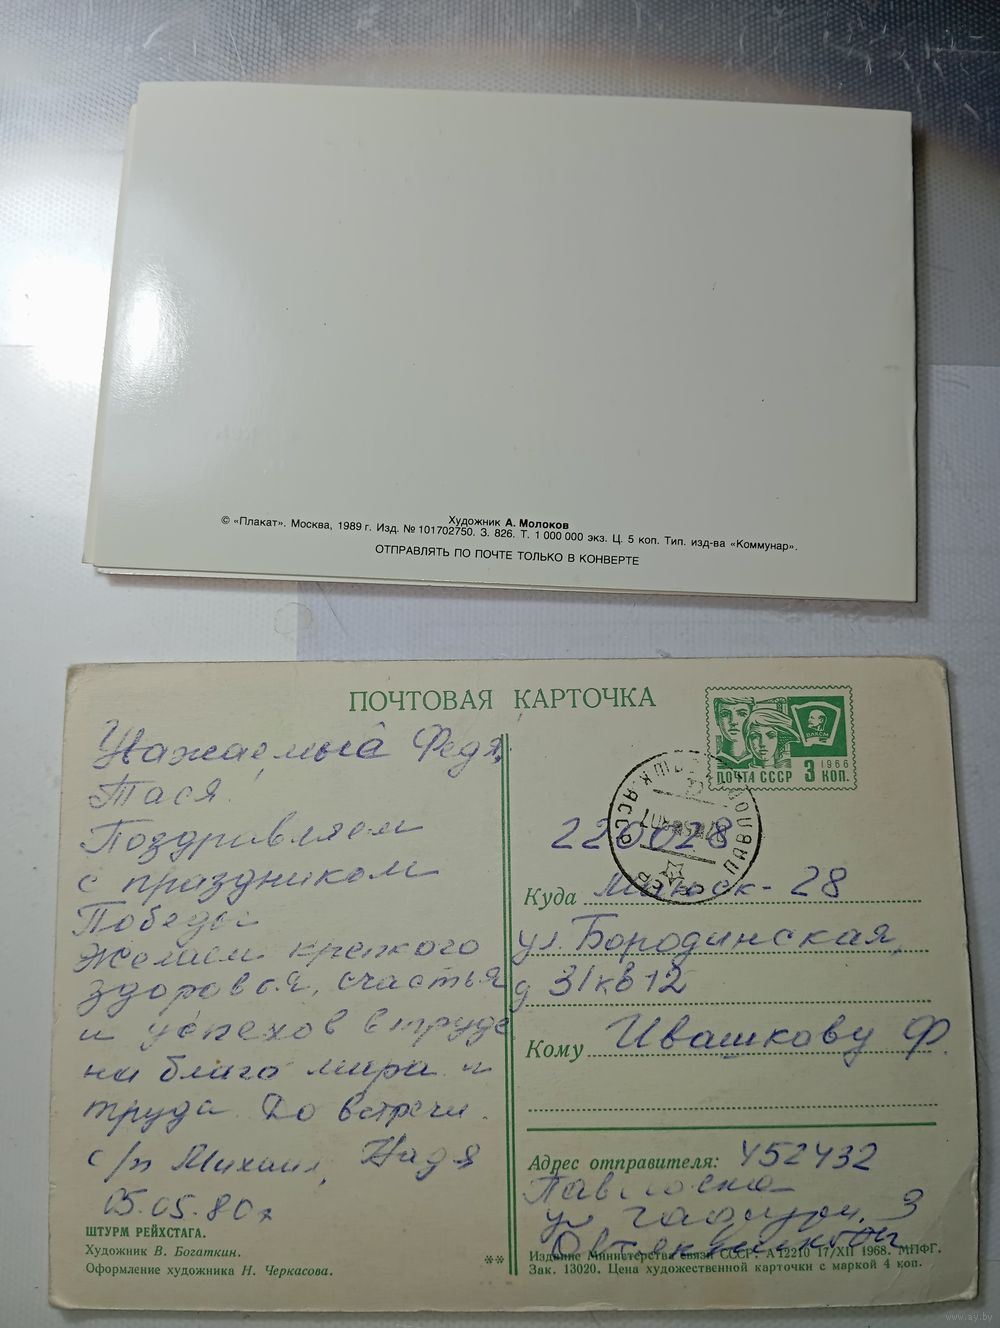 Художник А. Молоков
© «Плакат». Москва, 1989 г. Изд. № 101702750. З. 826. Т. 1 000 000 экз. Ц. 5 коп. Тип. изд-ва «Коммунар».
ОТПРАВЛЯТЬ ПО ПОЧТЕ ТОЛЬКО В КОНВЕРТЕ
ПОЧТОВАЯ КАРТОЧКА
Уважаемый Федя,
Тася.
Поздравляем
с праздником
Победы
Желаем крепкого
здоровья, счастья
и успехов в труде
на благо мира и
труда. До встречи.
с/п Михаил, Надя
05.05.80г
ШТУРМ РЕЙХСТАГА.
Художник В. Богаткин.
Оформление художника Н. Черкасова.
**
ВЛКСМ
1966
ПОЧТА СССР 3 КОП.
220028
Куда Минск - 28
ул. Бородинская,
д 31кв12
Кому Ивашкову Ф.
Адрес отправителя: 452432
ул 3
Издание Министерства связи СССР. А12210 17/XII 1968. МПФГ.
Зак. 13020. Цена художественной карточки с маркой 4 коп.
www.ay.by